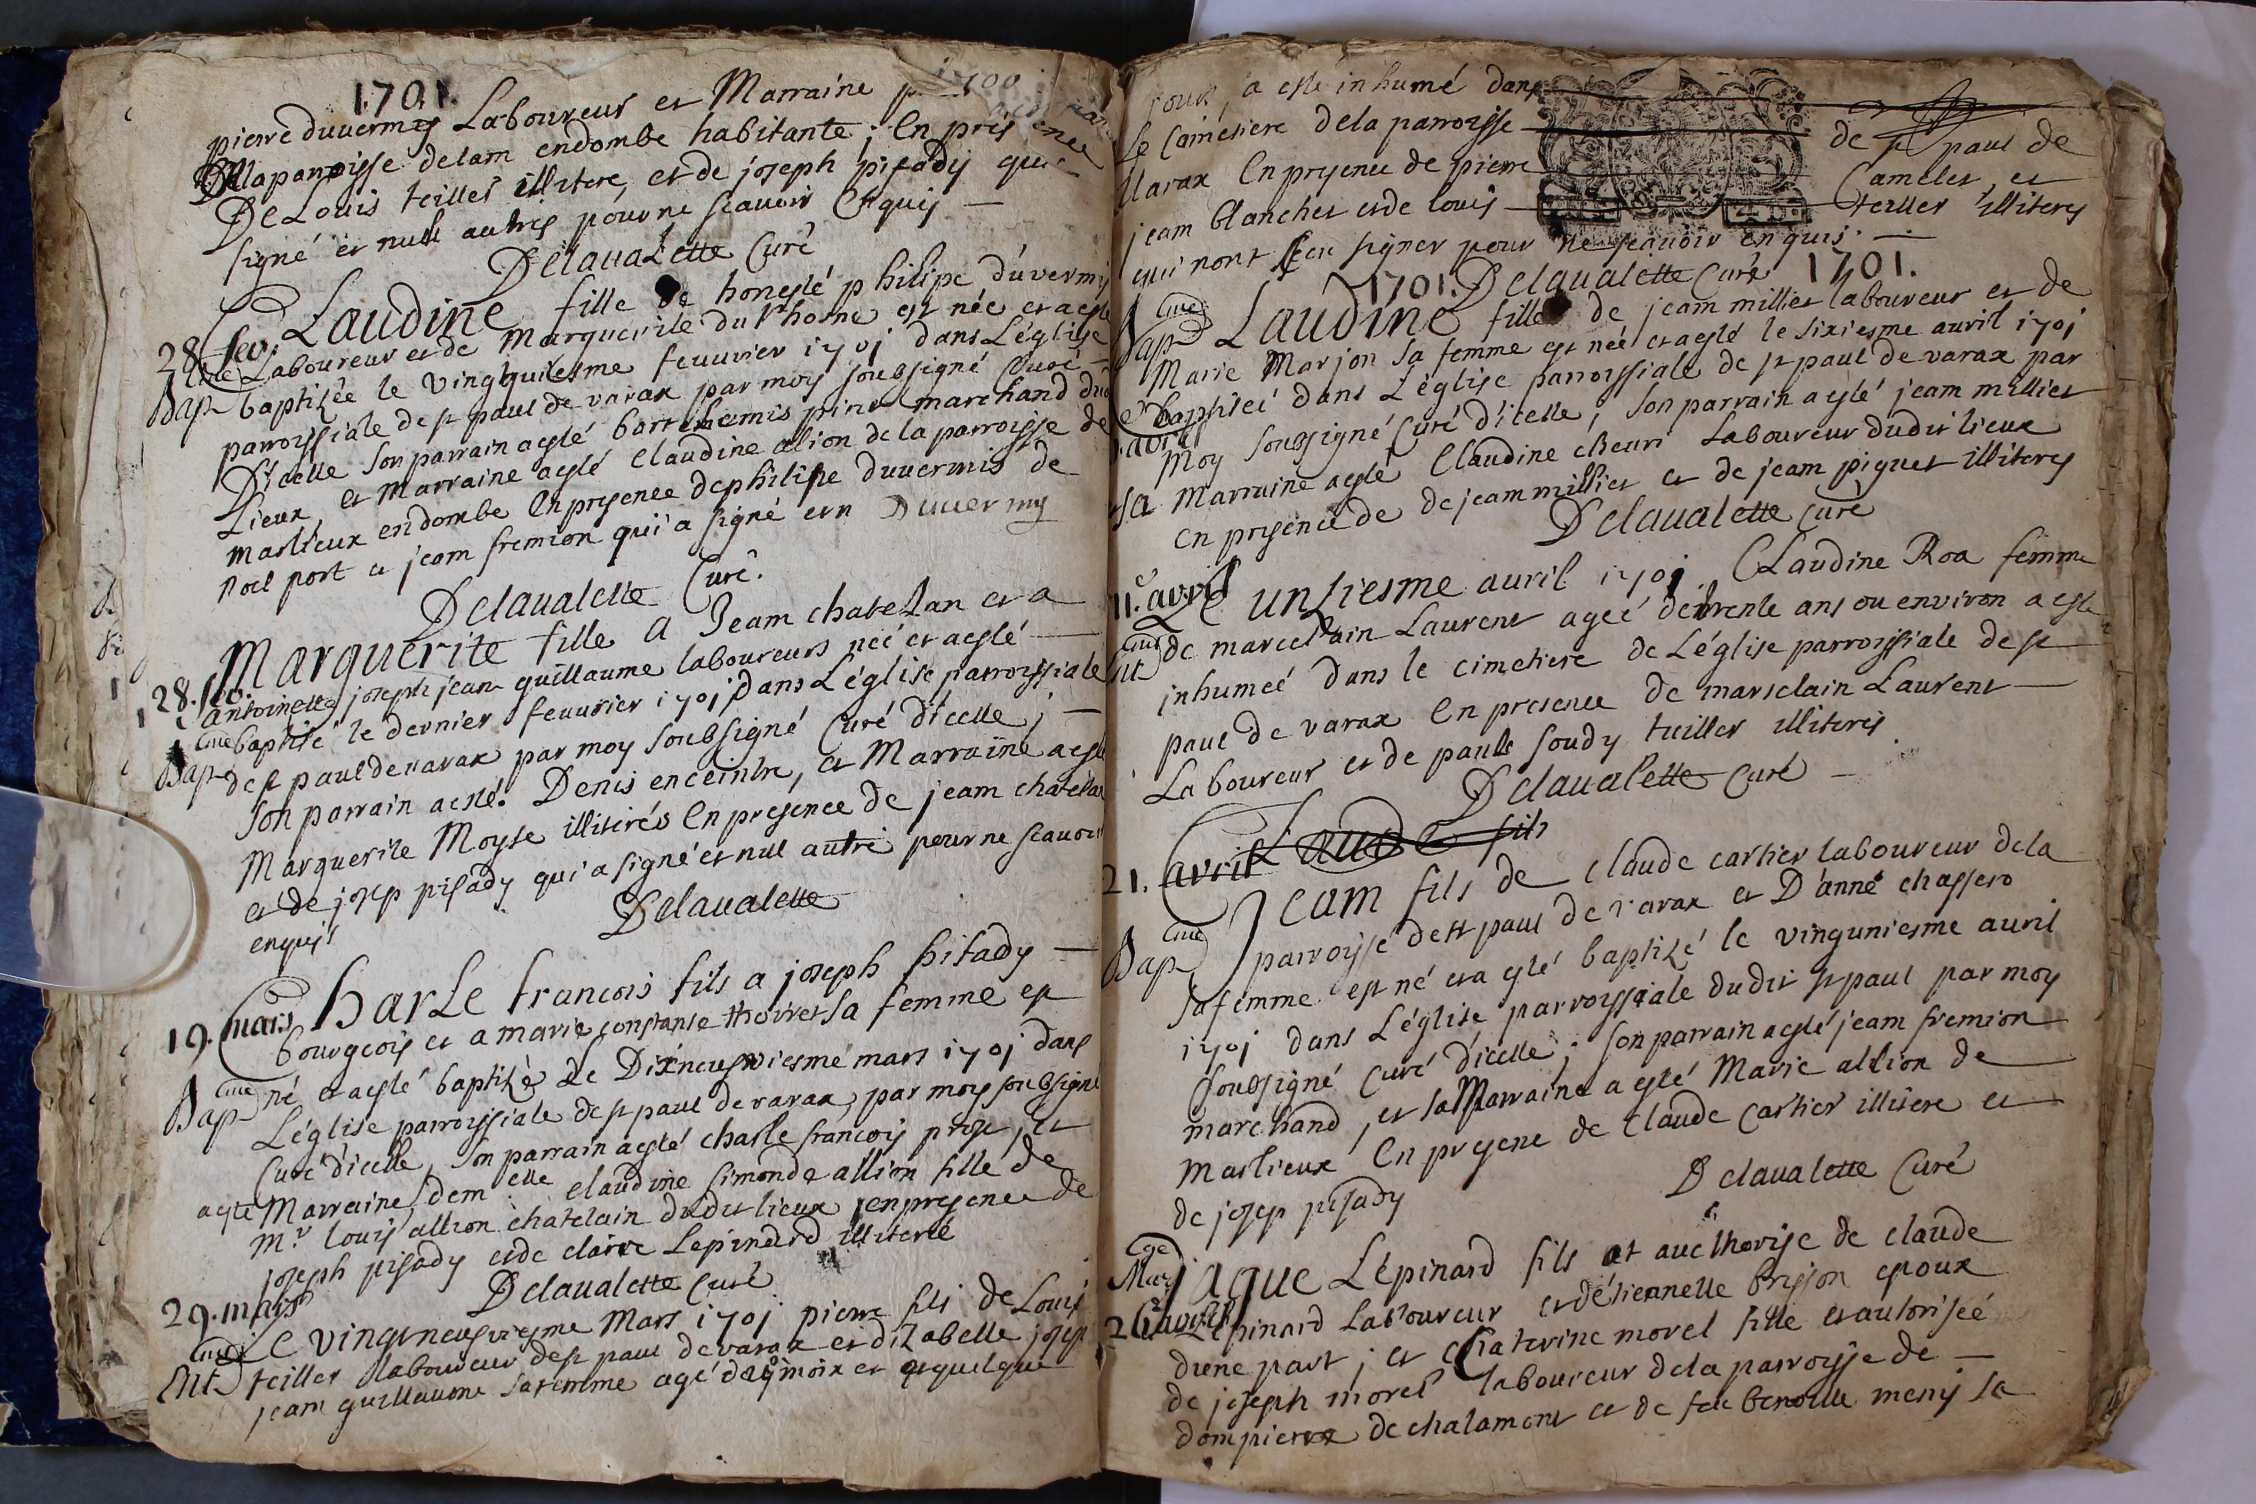 1701.
pierre duvermy Laboureur et Marraine
De la parroisse delam endombe habitante ; En presence
De Louis teiller illitere, et de joseph pisady qui a
signé et null autres pour ne scauoir Enquis —
Delaualette Curé
28. fev. Claudine fille de honeste philipe duvermy
Laboureur et de Marguerite du Rhosne est née et a esté
Bap baptizée le vingthuitiesme feuurier 1701 dans L'église
parroissiale de st paul de varax par moy soubsigné Curé
D'icelle son parrain a esté bartelemis pine marchand dud
Lieux et Marraine a esté Claudine alion de la parroisse de
Marlieux en dombe En presence de philipe duvermis de
noel port et jeam fremion qui a signé et n Duuermy
Delaualette Curé.
28. fev. Marguerite fille A Jeam chatelan et a
Antoinette joseph jeam guillaume laboureurs née et a esté
baptisé le dernier feuurier 1701 dans L'église parroissiale
Bap de st paul de varax par moy soubsigné Curé d'icelle ;
son parrain a esté. Denis enceintre, et Marraine a esté
Marguerite Moyse illiterés En presence de jeam chatelan
et de josep pisady qui a signé et nul autre pour ne scauoir
enquis
Delaualette
19. mars Charle francois fils a joseph pisady —
bourgeois et a marie constanse thoivret sa femme est
Bap né et a esté baptizé Le Dixneufviesme mars 1701 dans
L'église parroissiale de st paul de varax, par moy soubsigné
Curé d'icelle, son parrain a esté charle francois prost, et
a esté Marraine, demelle claudine simonde allion fille de
Mr louis allion chatelain dudit lieux, en presence de
joseph pisady et de claire Lepinard illiteré
Delaualette Curé
29. mars Le vingtneufviesme Mars 1701 pierre fils de Louis
Ent teiller laboureur de st paul de varax et dizabelle josep
jeam guillaume sa femme agé de 9 moix et quelque
jour, a esté inhumé dans
Le Cimetiere de la parroisse de st paul de
Varax En presence de pierre Camelet, et
jeam blanchet et de louis teiller illiteres
qui n'ont sceu signer pour ne scauoir enquis. —
1701. Delaualette Curé 1701.
Bap Claudine fille de jeam millier laboureur et de
Marie Marjon sa femme est née et a esté le sixiesme auril 1701
baptisée dans L'église parroissiale de st paul de varax par
avril Moy soubsigné Curé d'icelle, son parrain a esté jeam millier
et sa marraine a esté Claudine cheuri Laboureur dudit lieux
en presence de de jeam millier et de jeam piquet illiteres
Delaualette Curé
11.e avril Le unziesme auril 1701 Claudine Roa femme
Ent de marcellain Laurent agée de trente ans ou environ a esté
inhumée dans le cimetiere de L'église parroissiale de st
paul de varax En presence de marselain Laurent —
Laboureur et de paule soudy tuiller illiterés.
Delaualette Curé —
Claude fils
21. avril Jeam fils de Claude cartier laboureur de la
Bap parroisse de st paul de varax et D'anne chassero
sa femme est né et a esté baptizé le vinguniesme auril
1701 dans L'église parroissiale dudit st paul par moy
soubsigné Curé d'icelle ; son parrain a esté jeam fremion
marchand, et sa Marraine a esté Marie allion de
Marlieux En presene de Claude Cartier illitere et
de josep pisady
Delaualette Curé
Mar Jaque Lepinard fils et aucthorise de claude
26 avril Lepinard Laboureur et détiennette brisson epoux
dune part ; et Chaterine morel fille et autorisée
de joseph morel laboureur de la parroisse de —
dompierre de chalamont et de feu benoitte meny sa